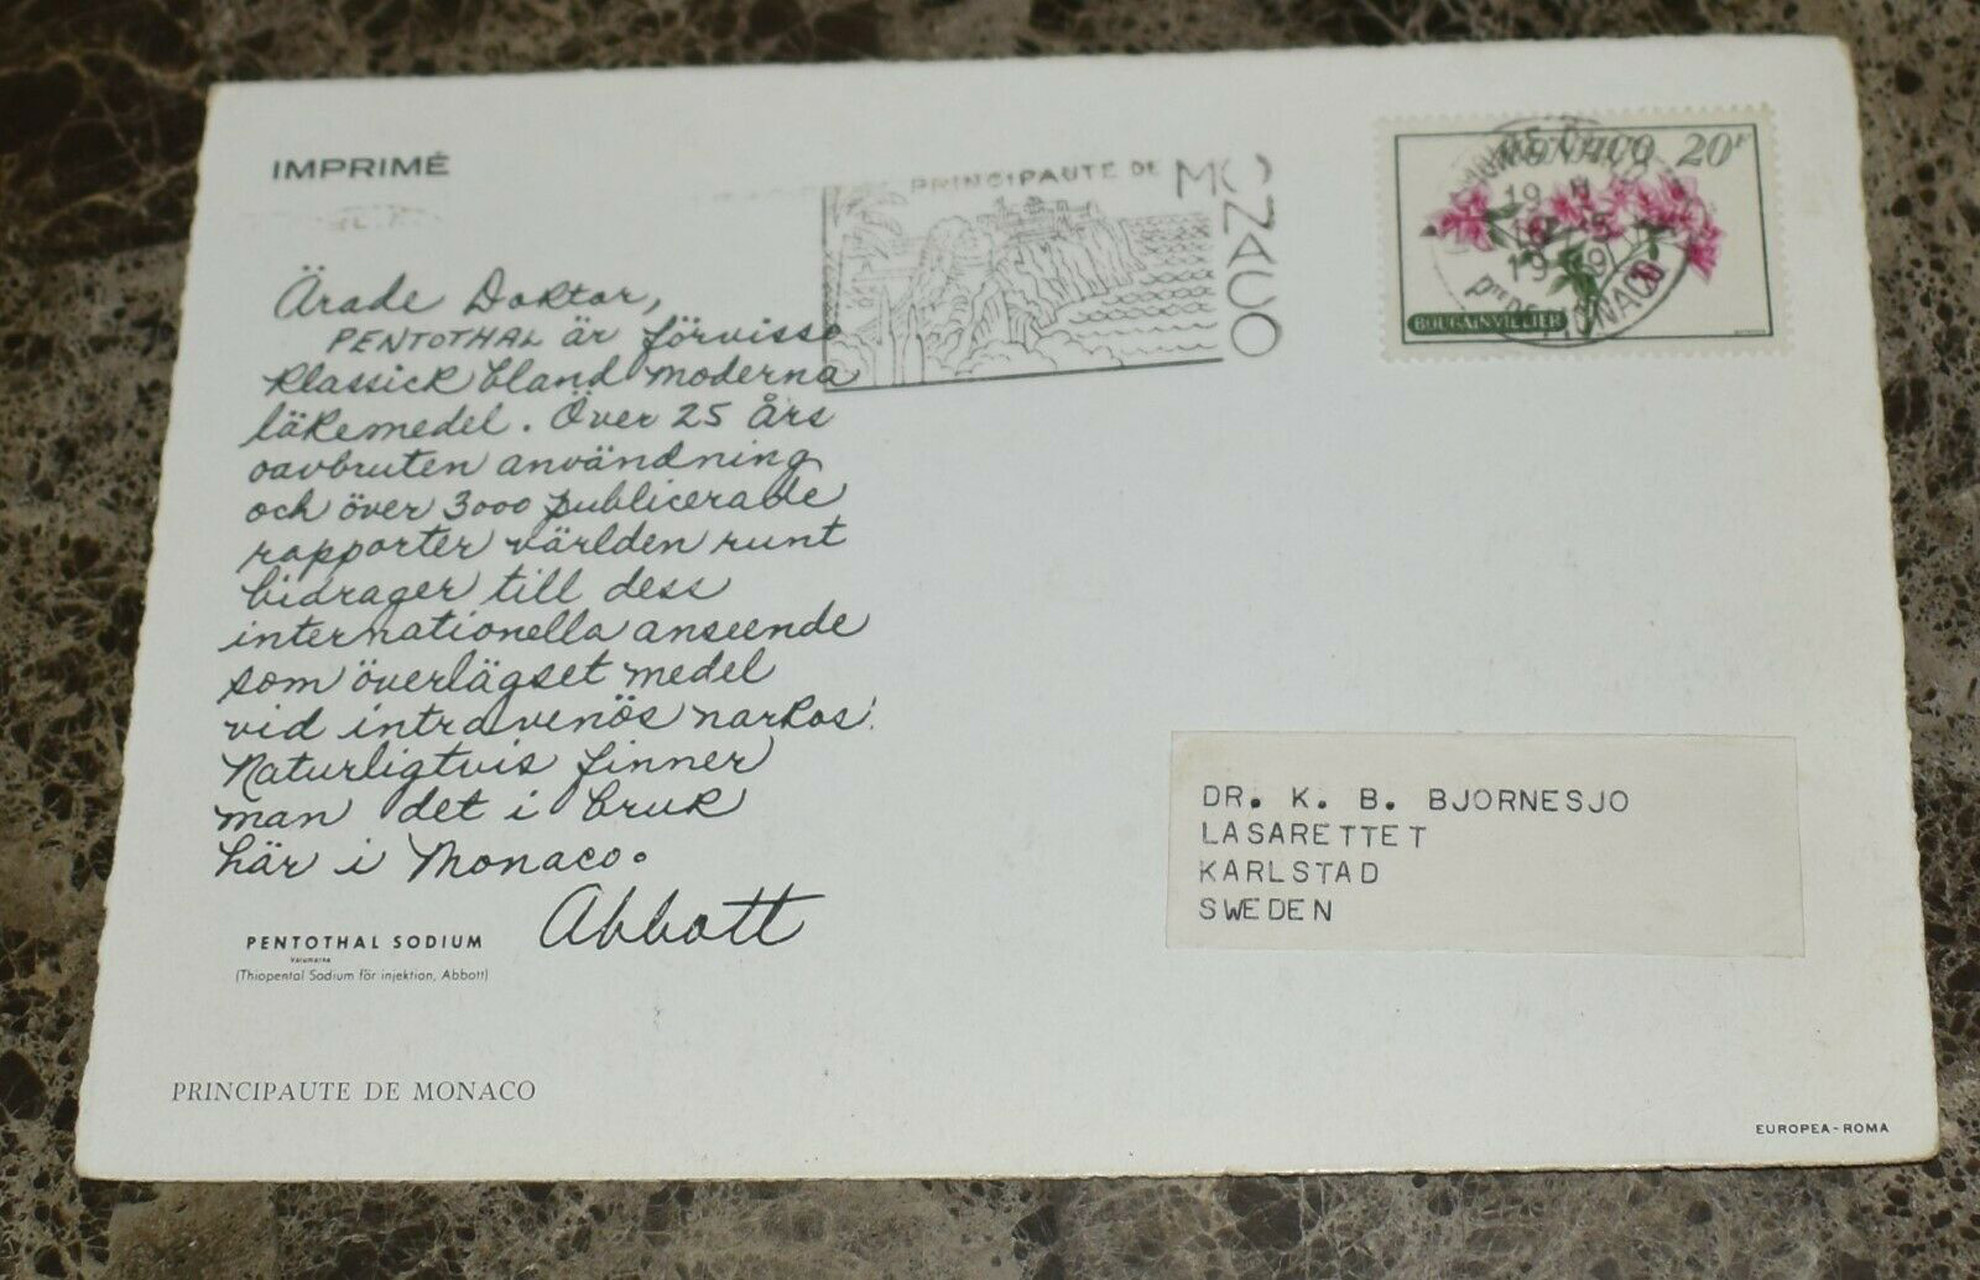 IMPRIMÉ
PRINCIPAUTE DE MONACO
MONACO 20F
BOUGAINVILLIER
Ärade Doktor,
PENTOTHAL är förvisso
klassick bland moderna
läkemedel. Över 25 års
oavbruten användning
och över 3000 publicerade
rapporter världen runt
bidrager till dess
internationella anseende
som överlägset medel
vid intravenös narkos.
Naturligtvis finner
man det i bruk
här i Monaco.
Abbott
PENTOTHAL SODIUM
Varumärke
(Thiopental Sodium för injektion, Abbott)
DR. K. B. BJORNESJO
LASARETTET
KARLSTAD
SWEDEN
PRINCIPAUTE DE MONACO
EUROPEA-ROMA